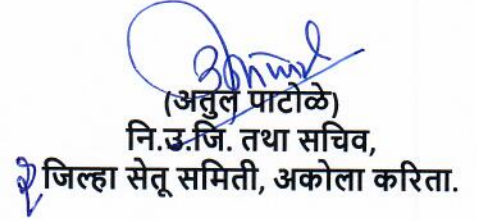 (अतुल पाटोळे)
नि.उ.जि. तथा सचिव,
जिल्हा सेतू समिती, अकोला करिता.